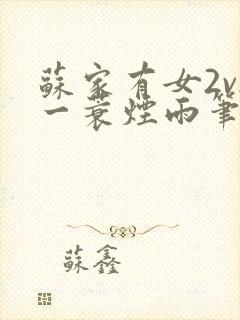 蘇家有女2v
一蓑煙雨筆
蘇鑫